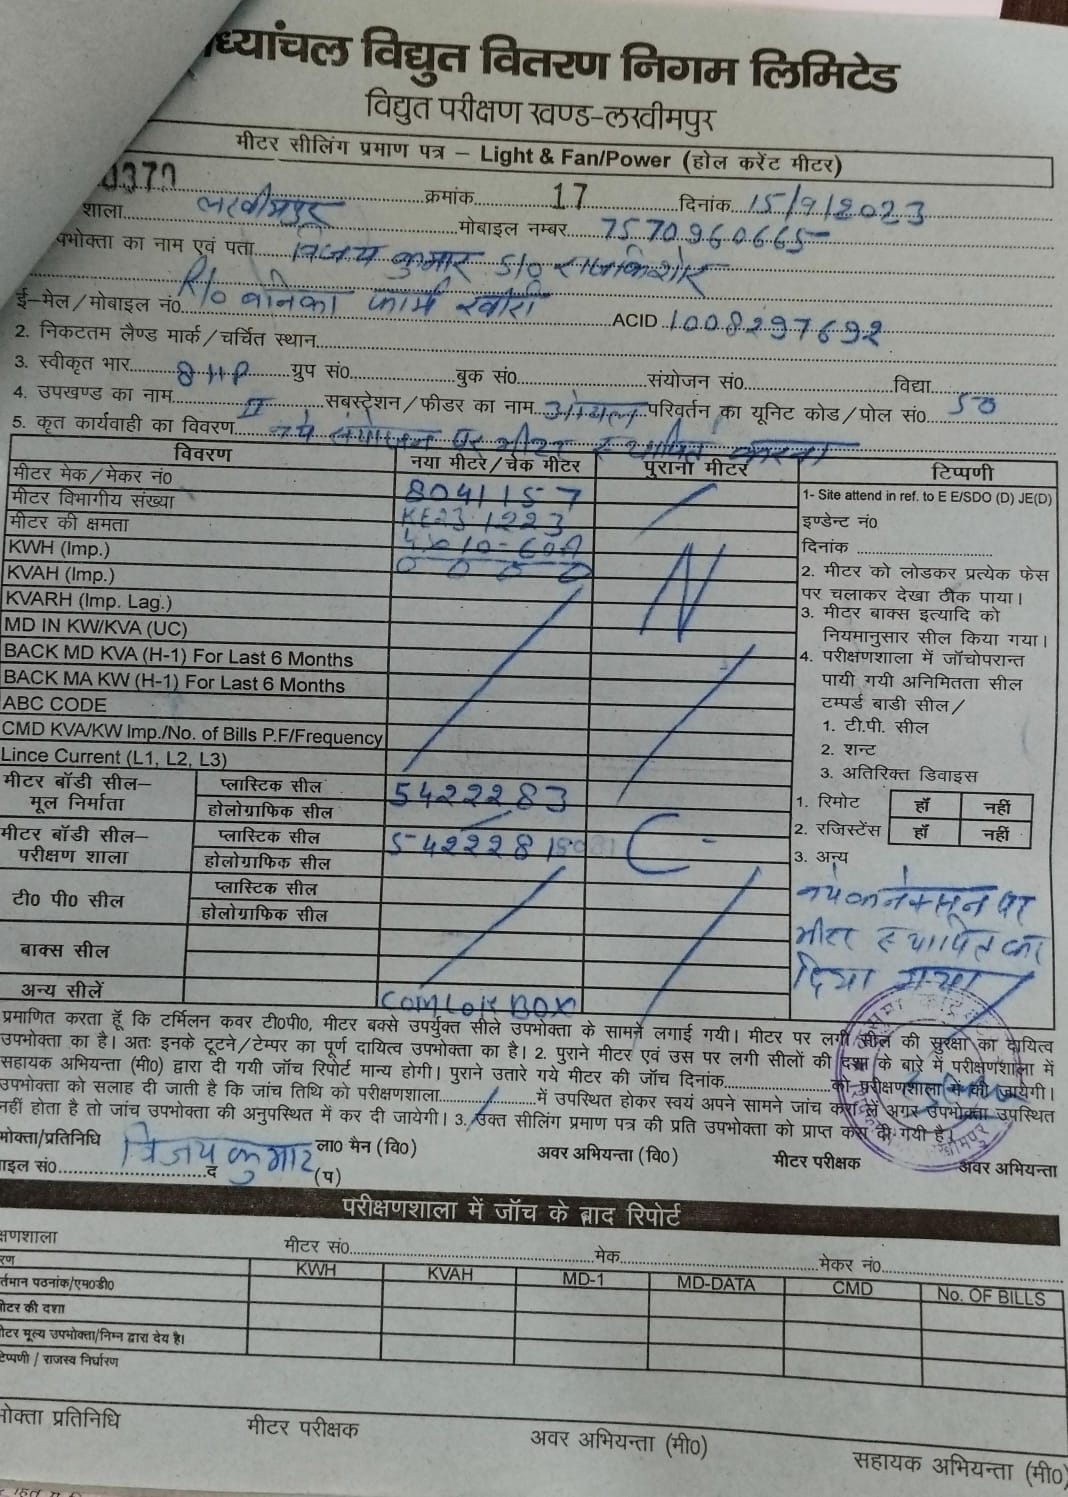 ध्यांचल विद्युत वितरण निगम लिमिटेड
विद्युत परीक्षण खण्ड-लखीमपुर
मीटर सीलिंग प्रमाण पत्र – Light & Fan/Power (होल करेंट मीटर)
0370
क्रमांक 17 दिनांक 15/9/2023
शाला लखीमपुर मोबाइल नम्बर 7570960665
पभोक्ता का नाम एवं पता विजय कुमार S/o राजकिशोर
R/o
ई–मेल/मोबाइल नं० फार्म ACID 1008297692
2. निकटतम लैण्ड मार्क/चर्चित स्थान
3. स्वीकृत भार 8 HP ग्रुप सं० बुक सं० संयोजन सं० विद्या
4. उपखण्ड का नाम II सबस्टेशन/फीडर का नाम ओयल परिवर्तन का यूनिट कोड/पोल सं० 50
5. कृत कार्यवाही का विवरण नये संयोजन पर मीटर स्थापित करना
विवरण नया मीटर/चेक मीटर पुराना मीटर टिप्पणी
मीटर मेक/मेकर नं० 8041157
मीटर विभागीय संख्या KE23 1223
मीटर की क्षमता
KWH (Imp.) 0 0 0 0
KVAH (Imp.)
KVARH (Imp. Lag.)
MD IN KW/KVA (UC)
BACK MD KVA (H-1) For Last 6 Months
BACK MA KW (H-1) For Last 6 Months
ABC CODE
CMD KVA/KW Imp./No. of Bills P.F/Frequency
Lince Current (L1, L2, L3)
1- Site attend in ref. to E E/SDO (D) JE(D)
इण्डेन्ट नं०
दिनांक
2. मीटर को लोडकर प्रत्येक फेस
पर चलाकर देखा ठीक पाया।
3. मीटर बाक्स इत्यादि को
नियमानुसार सील किया गया।
4. परीक्षणशाला में जाँचोपरान्त
पायी गयी अनिमितता सील
टम्पर्ड बाडी सील/
1. टी.पी. सील
2. शन्ट
3. अतिरिक्त डिवाइस
1. रिमोट हाँ नहीं
2. रजिस्टेंस हाँ नहीं
3. अन्य
नये कनेक्सन पर
मीटर स्थापित कर
दिया गया
N
C
मीटर बॉडी सील–
मूल निर्माता
प्लास्टिक सील 5422283
होलोग्राफिक सील
मीटर बॉडी सील–
परीक्षण शाला
प्लास्टिक सील 5422281
होलोग्राफिक सील
टी० पी० सील
प्लास्टिक सील
होलोग्राफिक सील
बाक्स सील
अन्य सीलें BOX
प्रमाणित करता हूँ कि टर्मिलन कवर टी०पी०, मीटर बक्से उपर्युक्त सीले उपभोक्ता के सामने लगाई गयी। मीटर पर लगी सील की सुरक्षा का दायित्व
उपभोक्ता का है। अतः इनके टूटने/टेम्पर का पूर्ण दायित्व उपभोक्ता का है। 2. पुराने मीटर एवं उस पर लगी सीलों की दशा के बारे में परीक्षणशाला में
सहायक अभियन्ता (मी०) द्वारा दी गयी जाँच रिपोर्ट मान्य होगी। पुराने उतारे गये मीटर की जाँच दिनांक को परीक्षणशाला में की जायेगी।
उपभोक्ता को सलाह दी जाती है कि जांच तिथि को परीक्षणशाला में उपस्थित होकर स्वयं अपने सामने जांच करा लें अगर उपभोक्ता उपस्थित
नहीं होता है तो जांच उपभोक्ता की अनुपस्थिति में कर दी जायेगी। 3. उक्त सीलिंग प्रमाण पत्र की प्रति उपभोक्ता को प्राप्त करा दी गयी है।
भोक्ता/प्रतिनिधि विजय कुमार ला० मैन (वि०) अवर अभियन्ता (वि०) मीटर परीक्षक अवर अभियन्ता
ाइल सं० द (प)
परीक्षणशाला में जाँच के बाद रिपोर्ट
क्षणशाला मीटर सं० मेक मेकर नं०
रण KWH KVAH MD-1 MD-DATA CMD No. OF BILLS
र्तमान पठनांक/एम०डी०
ीटर की दशा
ीटर मूल्य उपभोक्ता/निम्न द्वारा देय है।
टिप्पणी / राजस्व निर्धारण
भोक्ता प्रतिनिधि मीटर परीक्षक अवर अभियन्ता (मी०) सहायक अभियन्ता (मी०)